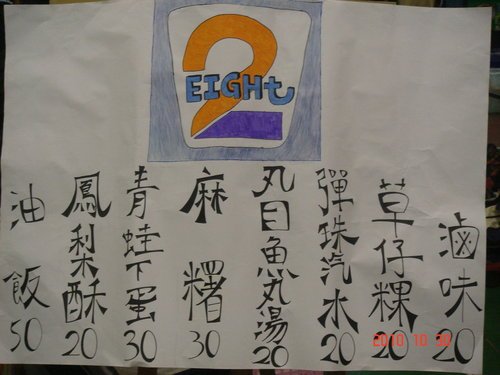 2
EIGHt
滷味20
草仔粿20
彈珠汽水20
丸目魚丸湯20
麻糬30
青蛙下蛋30
鳳梨酥20
油飯50
2010 10